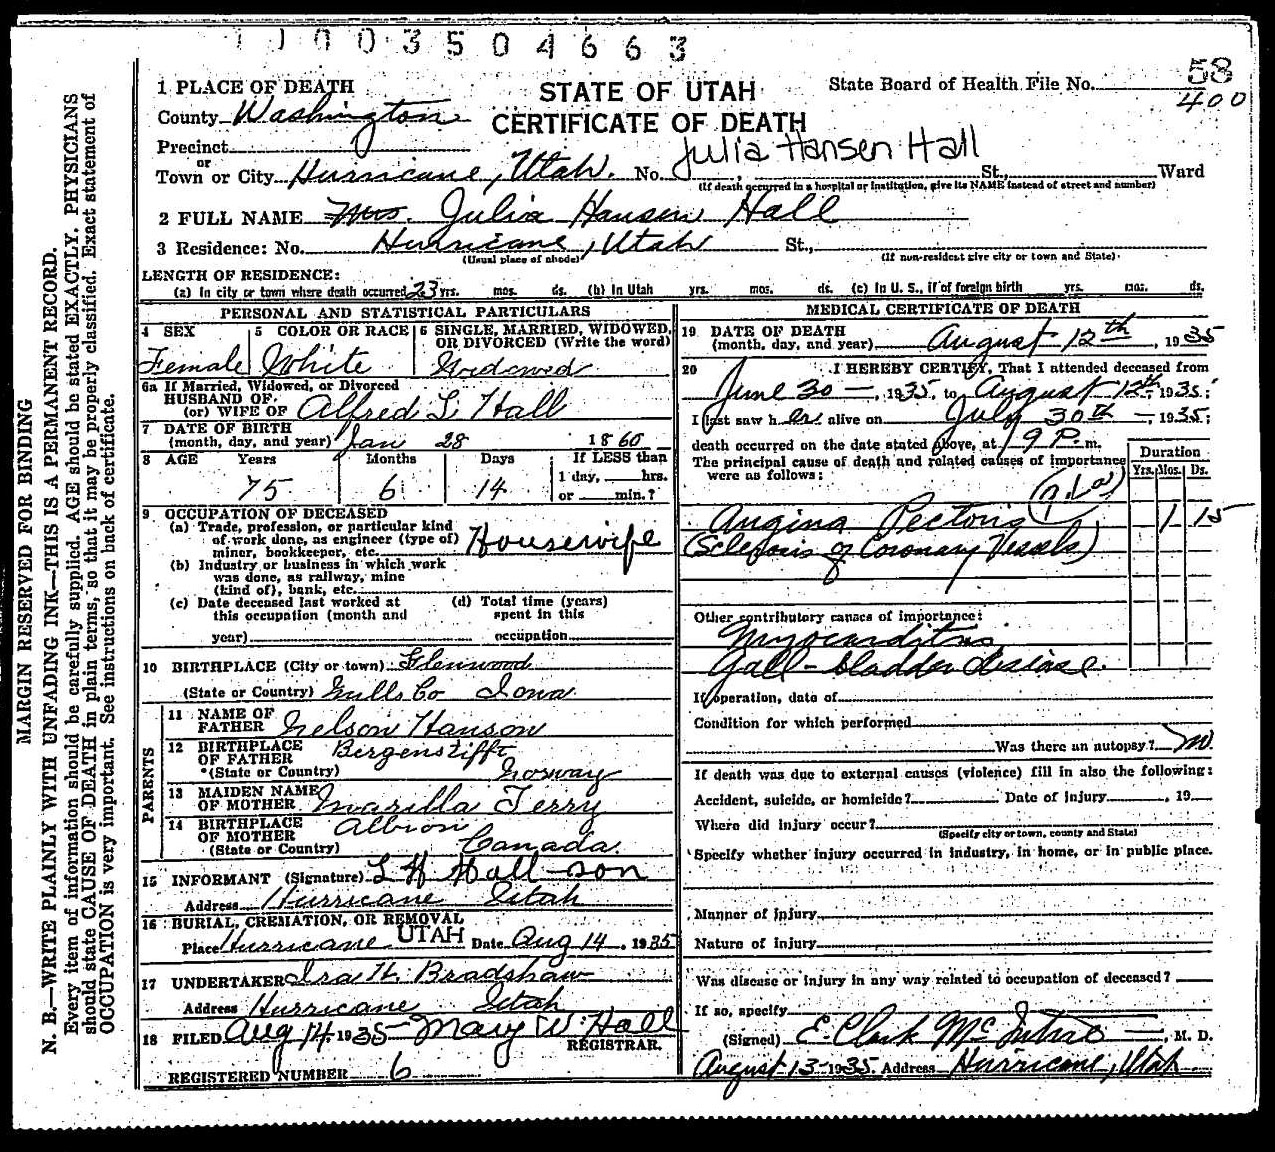 1 0 0 3 5 0 4 6 6 3
58
400
1 PLACE OF DEATH
STATE OF UTAH
State Board of Health File No.
County Washington
CERTIFICATE OF DEATH
Precinct
Julia Hansen Hall
or
Town or City Hurricane, Utah. No. , St., Ward
(If death occurred in a hospital or institution, give its NAME instead of street and number)
2 FULL NAME Mrs. Julia Hansen Hall
3 Residence: No. Hurricane, Utah St.,
(Usual place of abode) (If non-resident give city or town and State)
LENGTH OF RESIDENCE:
(a) In city or town where death occurred 23 yrs. mos. ds. (b) In Utah yrs. mos. ds. (c) In U. S., if of foreign birth yrs. mos. ds.
PERSONAL AND STATISTICAL PARTICULARS
4 SEX 5 COLOR OR RACE 6 SINGLE, MARRIED, WIDOWED, OR DIVORCED (Write the word)
Female White Widowed
6a If Married, Widowed, or Divorced
HUSBAND OF
(or) WIFE OF Alfred L Hall
7 DATE OF BIRTH
(month, day, and year) Jan 28 1860
8 AGE Years Months Days If LESS than
1 day, hrs.
75 6 14 or min.?
9 OCCUPATION OF DECEASED
(a) Trade, profession, or particular kind
of work done, as engineer (type of)
miner, bookkeeper, etc. Housewife
(b) Industry or business in which work
was done, as railway, mine
(kind of), bank, etc.
(c) Date deceased last worked at (d) Total time (years)
this occupation (month and spent in this
year) occupation
10 BIRTHPLACE (City or town) Glenwood
(State or Country) Mills Co Iowa
PARENTS
11 NAME OF
FATHER Nelson Hanson
12 BIRTHPLACE
OF FATHER Bergenstifft
(State or Country) Norway
13 MAIDEN NAME
OF MOTHER Marilla Terry
14 BIRTHPLACE Albion
OF MOTHER
(State or Country) Canada.
15 INFORMANT (Signature) L H Hall - son
Address Hurricane Utah
16 BURIAL, CREMATION, OR REMOVAL
Place Hurricane UTAH Date Aug 14, 1935
17 UNDERTAKER Ira H. Bradshaw
Address Hurricane Utah
18 FILED Aug 14 1935 Mary W. Hall
REGISTRAR.
REGISTERED NUMBER 6
MEDICAL CERTIFICATE OF DEATH
19 DATE OF DEATH
(month, day, and year) August 12th, 1935
20 I HEREBY CERTIFY, That I attended deceased from
June 30, 1935, to August 12th, 1935;
I last saw her alive on July 30th, 1935;
death occurred on the date stated above, at 9 P. m.
The principal cause of death and related causes of importance
were as follows:
Duration
Yrs. Mos. Ds.
Angina Pectoris 1 15
(Sclerosis of Coronary Vessels)
Other contributory causes of importance:
Myocarditis
Gall-bladder disease.
If operation, date of
Condition for which performed
Was there an autopsy? no.
If death was due to external causes (violence) fill in also the following:
Accident, suicide, or homicide? Date of injury , 19
Where did injury occur?
(Specify city or town, county and State)
Specify whether injury occurred in industry, in home, or in public place.
Manner of Injury
Nature of injury
Was disease or injury in any way related to occupation of deceased?
If so, specify
(Signed) E. Clark McIntire, M. D.
August 13 1935. Address Hurricane, Utah
MARGIN RESERVED FOR BINDING
N. B.—WRITE PLAINLY WITH UNFADING INK—THIS IS A PERMANENT RECORD.
Every item of information should be carefully supplied. AGE should be stated EXACTLY. PHYSICIANS
should state CAUSE OF DEATH in plain terms, so that it may be properly classified. Exact statement of
OCCUPATION is very important. See instructions on back of certificate.